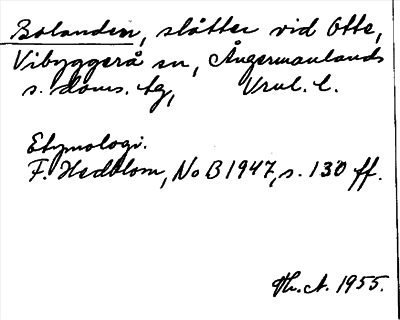 Bolanden, slåtter vid Otte,
Vibyggerå sn, Ångermanlands
s. doms. tg, Vrnl. l.
Etymologi.
F. Hedblom, NoB 1947, s. 130 ff.
Th. A. 1955.